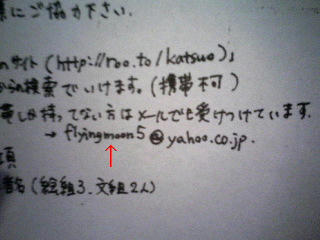 にご協力下さい.
サイト (http://roo.to/katsuo)」
からの検索でいけます。(携帯不可)
しか持ってない方はメールでも受けつけています.
→ flyingmoon5@yahoo.co.jp.
項
署名 (絵組3.文組2人)